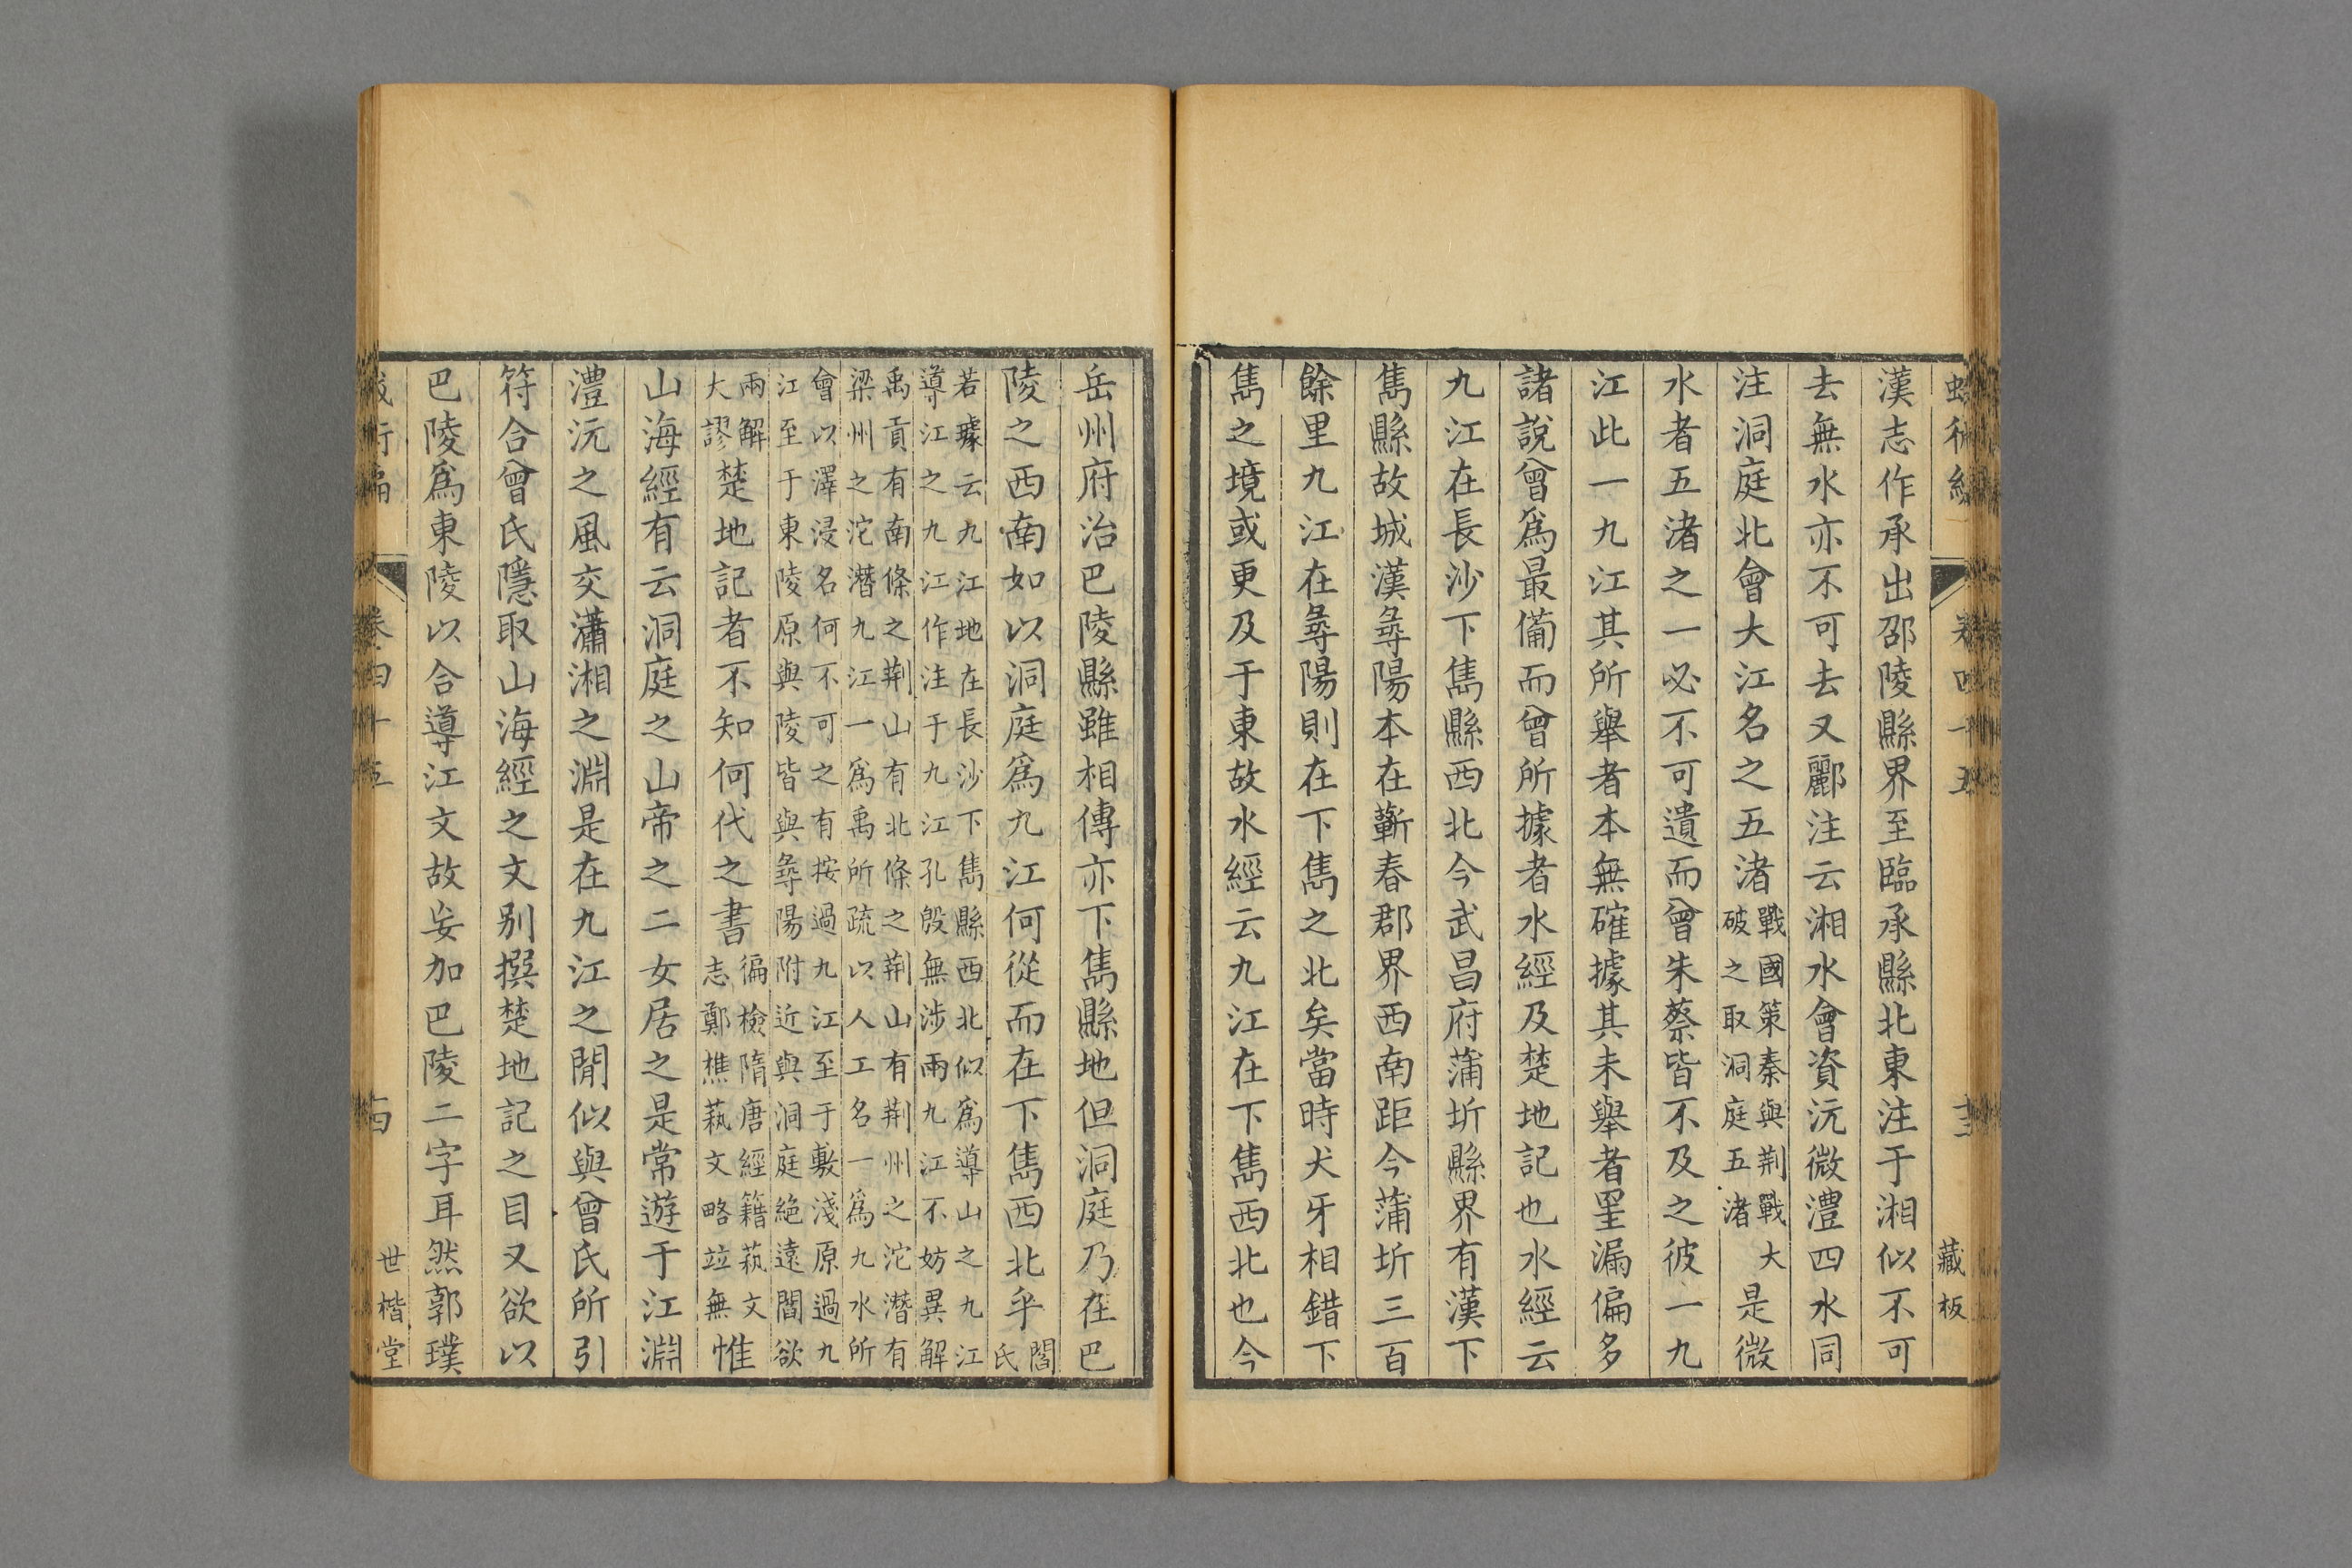 漢志作承出邵陵縣界至臨承縣北東注于湘似不可
去無水亦不可去又酈注云湘水會資沅微澧四水同
注洞庭北會大江名之五渚戰國策秦與荆戰大破之取洞庭五渚是微
水者五渚之一必不可遺而曾朱蔡皆不及之彼一九
江此一九江其所舉者本無確據其未舉者罣漏偏多
諸說曾爲最備而曾所據者水經及楚地記也水經云
九江在長沙下雋縣西北今武昌府蒲圻縣界有漢下
雋縣故城漢尋陽本在蘄春郡界西南距今蒲圻三百
餘里九江在尋陽則在下雋之北矣當時犬牙相錯下
雋之境或更及于東故水經云九江在下雋西北也今
藏板
岳州府治巴陵縣雖相傳亦下雋縣地但洞庭乃在巴
陵之西南如以洞庭爲九江何從而在下雋西北乎閻氏
若據云九江地在長沙下雋縣西北似爲導山之九江
導江之九江作注于九江孔殷無涉兩九江不妨異解
禹貢有南條之荆山有北條之荆山有荆州之沱潛有
梁州之沱潛九江一爲禹所疏以人工名一爲九水所
會以澤浸名何不可之有按過九江至于敷淺原過九
江至于東陵原與陵皆與尋陽附近與洞庭絕遠閻欲
兩解大謬楚地記者不知何代之書徧檢隋唐經籍蓺文志鄭樵蓺文略竝無惟
山海經有云洞庭之山帝之二女居之是常遊于江淵
澧沅之風交瀟湘之淵是在九江之閒似與曾氏所引
符合曾氏隱取山海經之文别撰楚地記之目又欲以
巴陵爲東陵以合導江文故妄加巴陵二字耳然郭璞
卷四十五
世楷堂